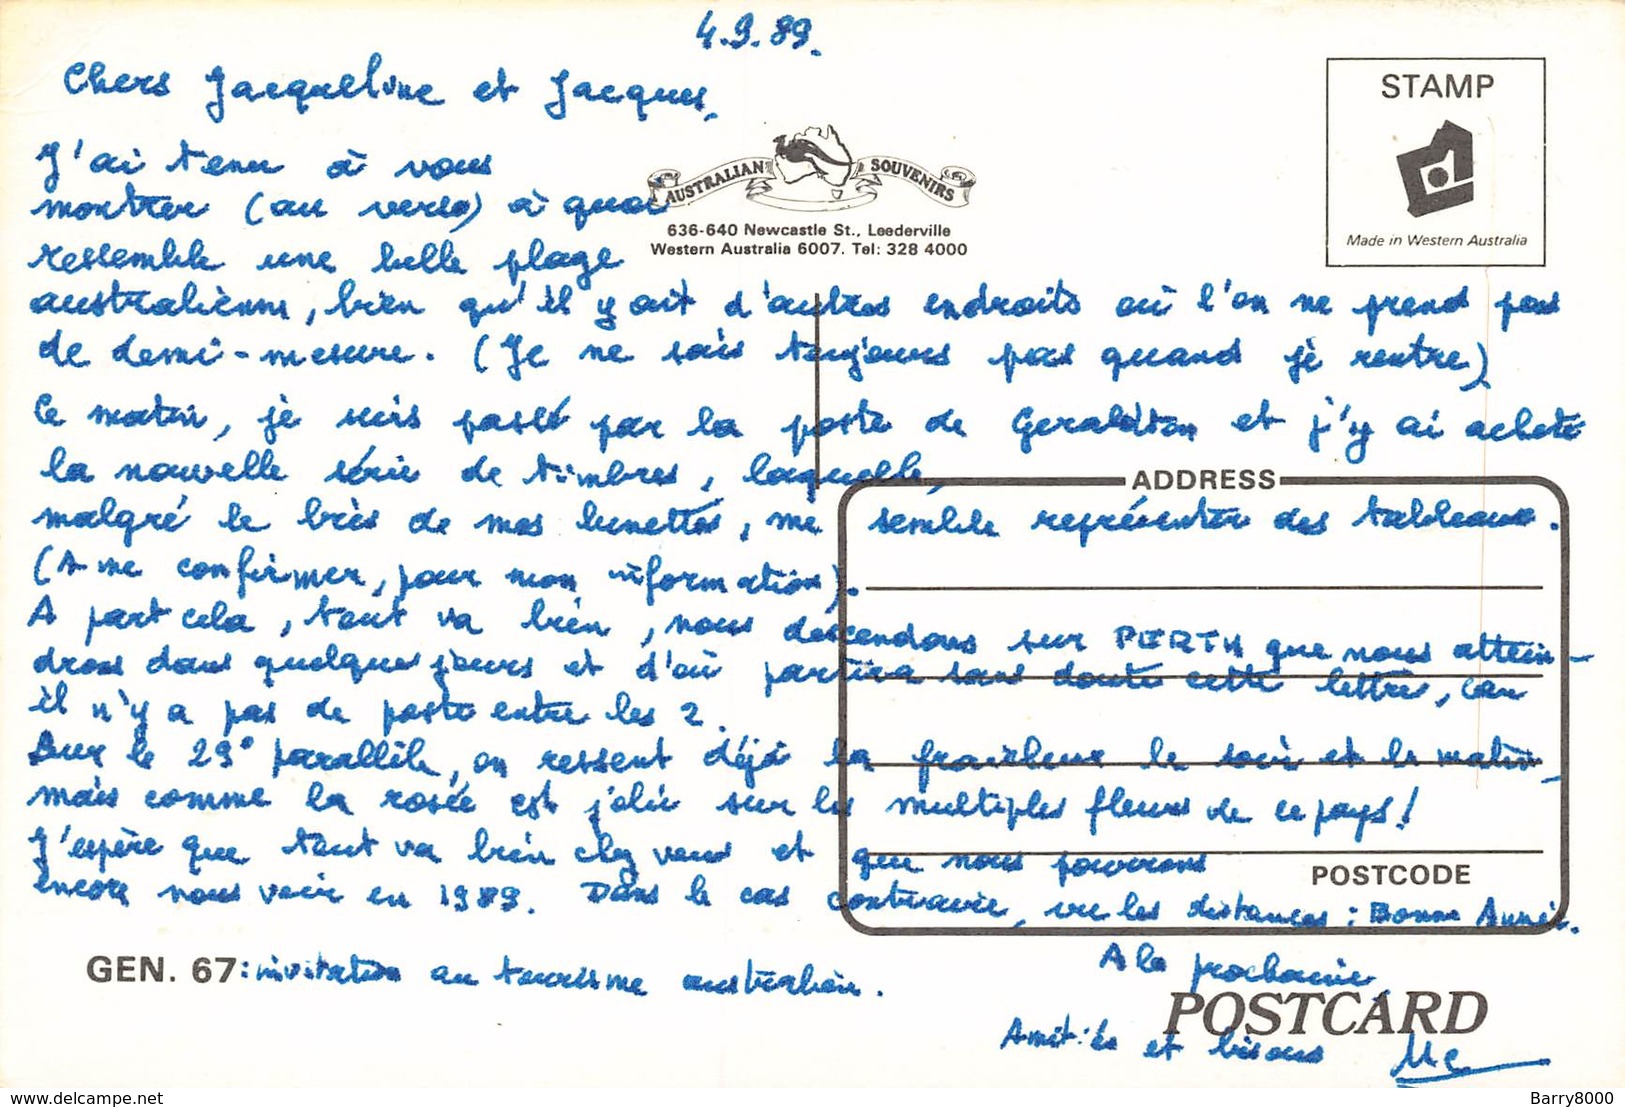 4.9.89.
Chers Jacqueline et Jacques,
J'ai tenu à vous
montrer (au verso) à quoi
ressemble une belle plage
australienne, bien qu'il y ait d'autres endroits où l'on ne prend pas
de demi-mesure. (Je ne sais toujours pas quand je rentre)
Ce matin, je suis passé par la poste de Geraldton et j'y ai acheté
la nouvelle série de timbres, laquelle,
malgré le bris de mes lunettes, me semble représenter des tableaux.
(A me confirmer, pour mon information).
A part cela, tout va bien, nous descendons sur PERTH que nous attein-
drons dans quelques jours et d'où partira sans doute cette lettre, car
il n'y a pas de poste entre les 2.
Sur le 29° parallèle, on ressent déjà la fraîcheur le soir et le matin,
mais comme la rosée est jolie sur les multiples fleurs de ce pays!
J'espère que tout va bien chez vous et que nous pourrons
encore nous voir en 1989. Dans le cas contraire, vu les distances : Bonne Année.
A la prochaine,
Amitiés et bisous
AUSTRALIAN SOUVENIRS
636-640 Newcastle St., Leederville
Western Australia 6007. Tel: 328 4000
STAMP
Made in Western Australia
ADDRESS
POSTCODE
GEN. 67 : invitation au tourisme australien.
POSTCARD
delcampe.net
Barry8000